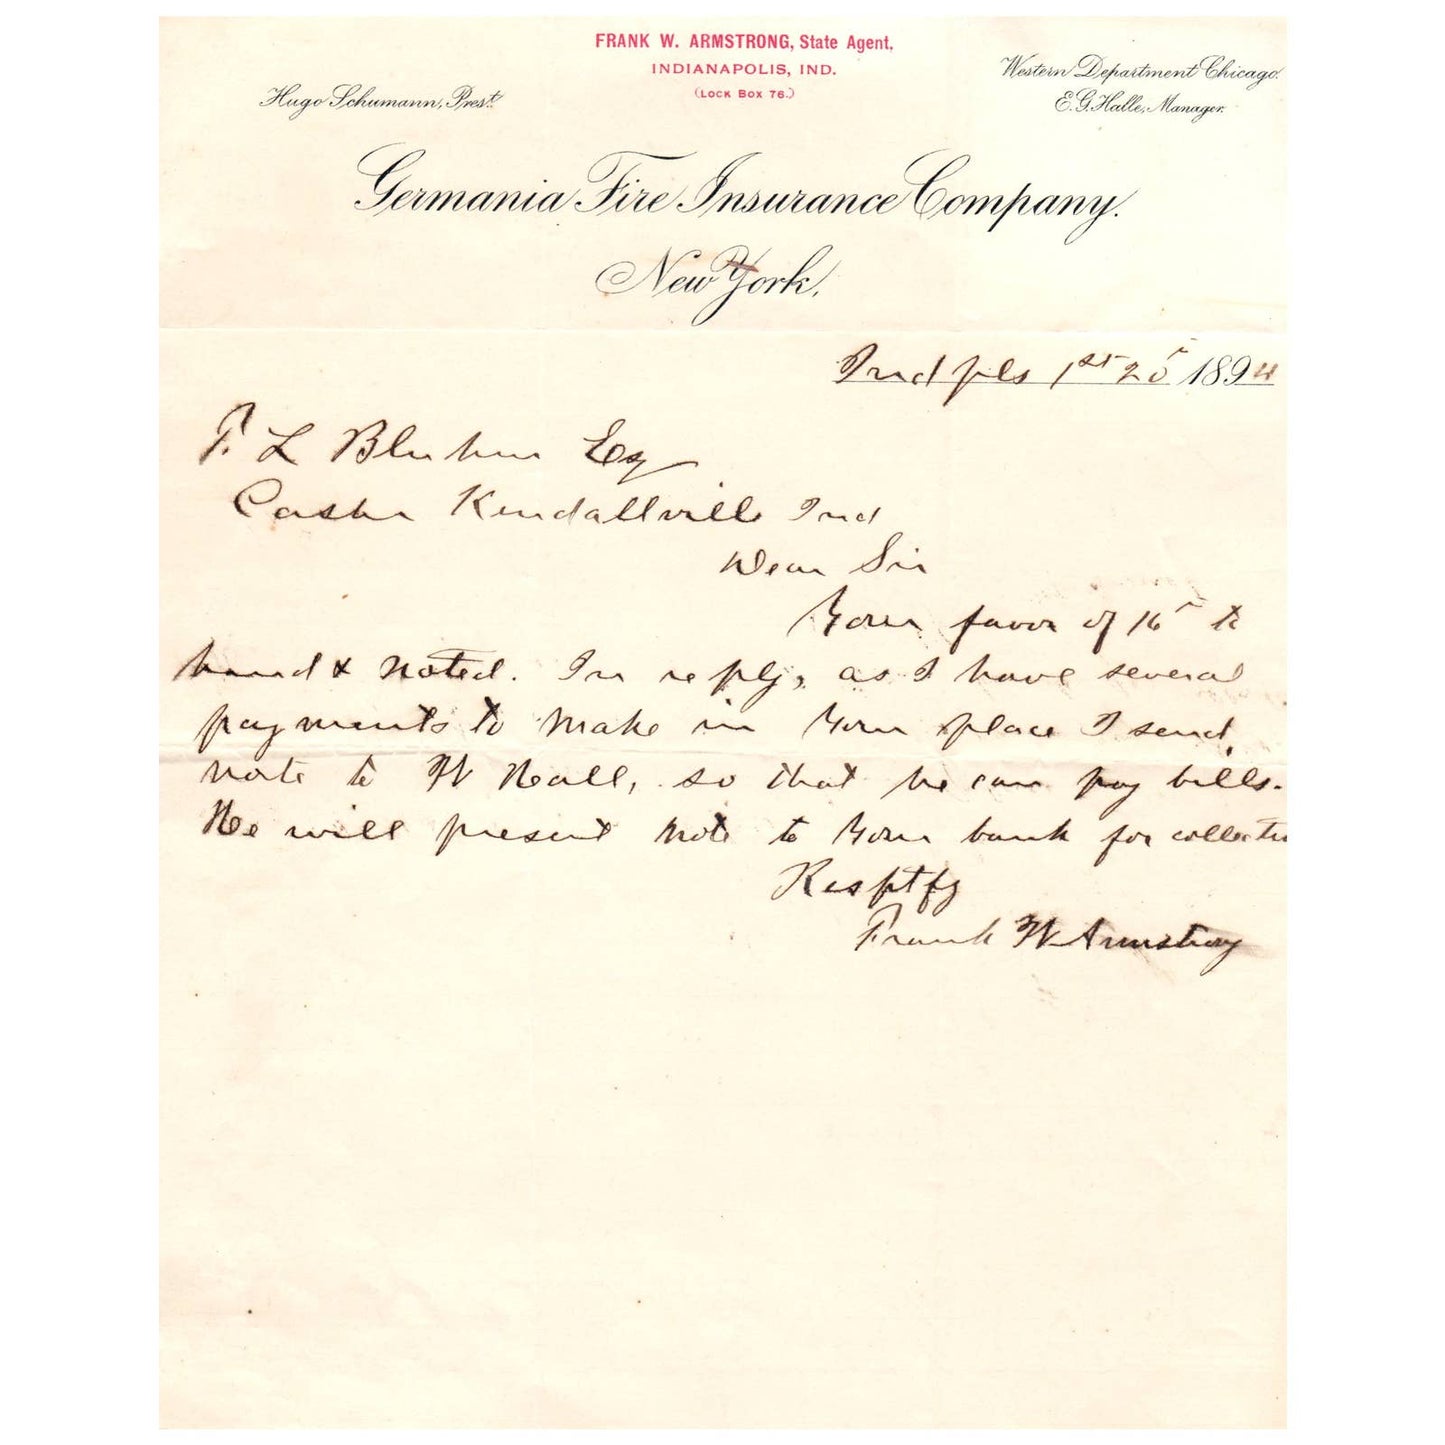 FRANK W. ARMSTRONG, State Agent,
INDIANAPOLIS, IND.
(LOCK BOX 76.)
Hugo Schumann, Prest.
Western Department Chicago.
E. G. Halle, Manager.
Germania Fire Insurance Company.
New York.
Indpls 1st 25 1894
F. L Esq
Cashr Kendallville Ind
Dear Sir
Your favor of 16 to
hand & noted. In reply, as I have several
payments to make in your place I send
note to W Hall, so that he can pay bills.
He will present note to your bank for collectn
Resptfy
Frank W Armstrong